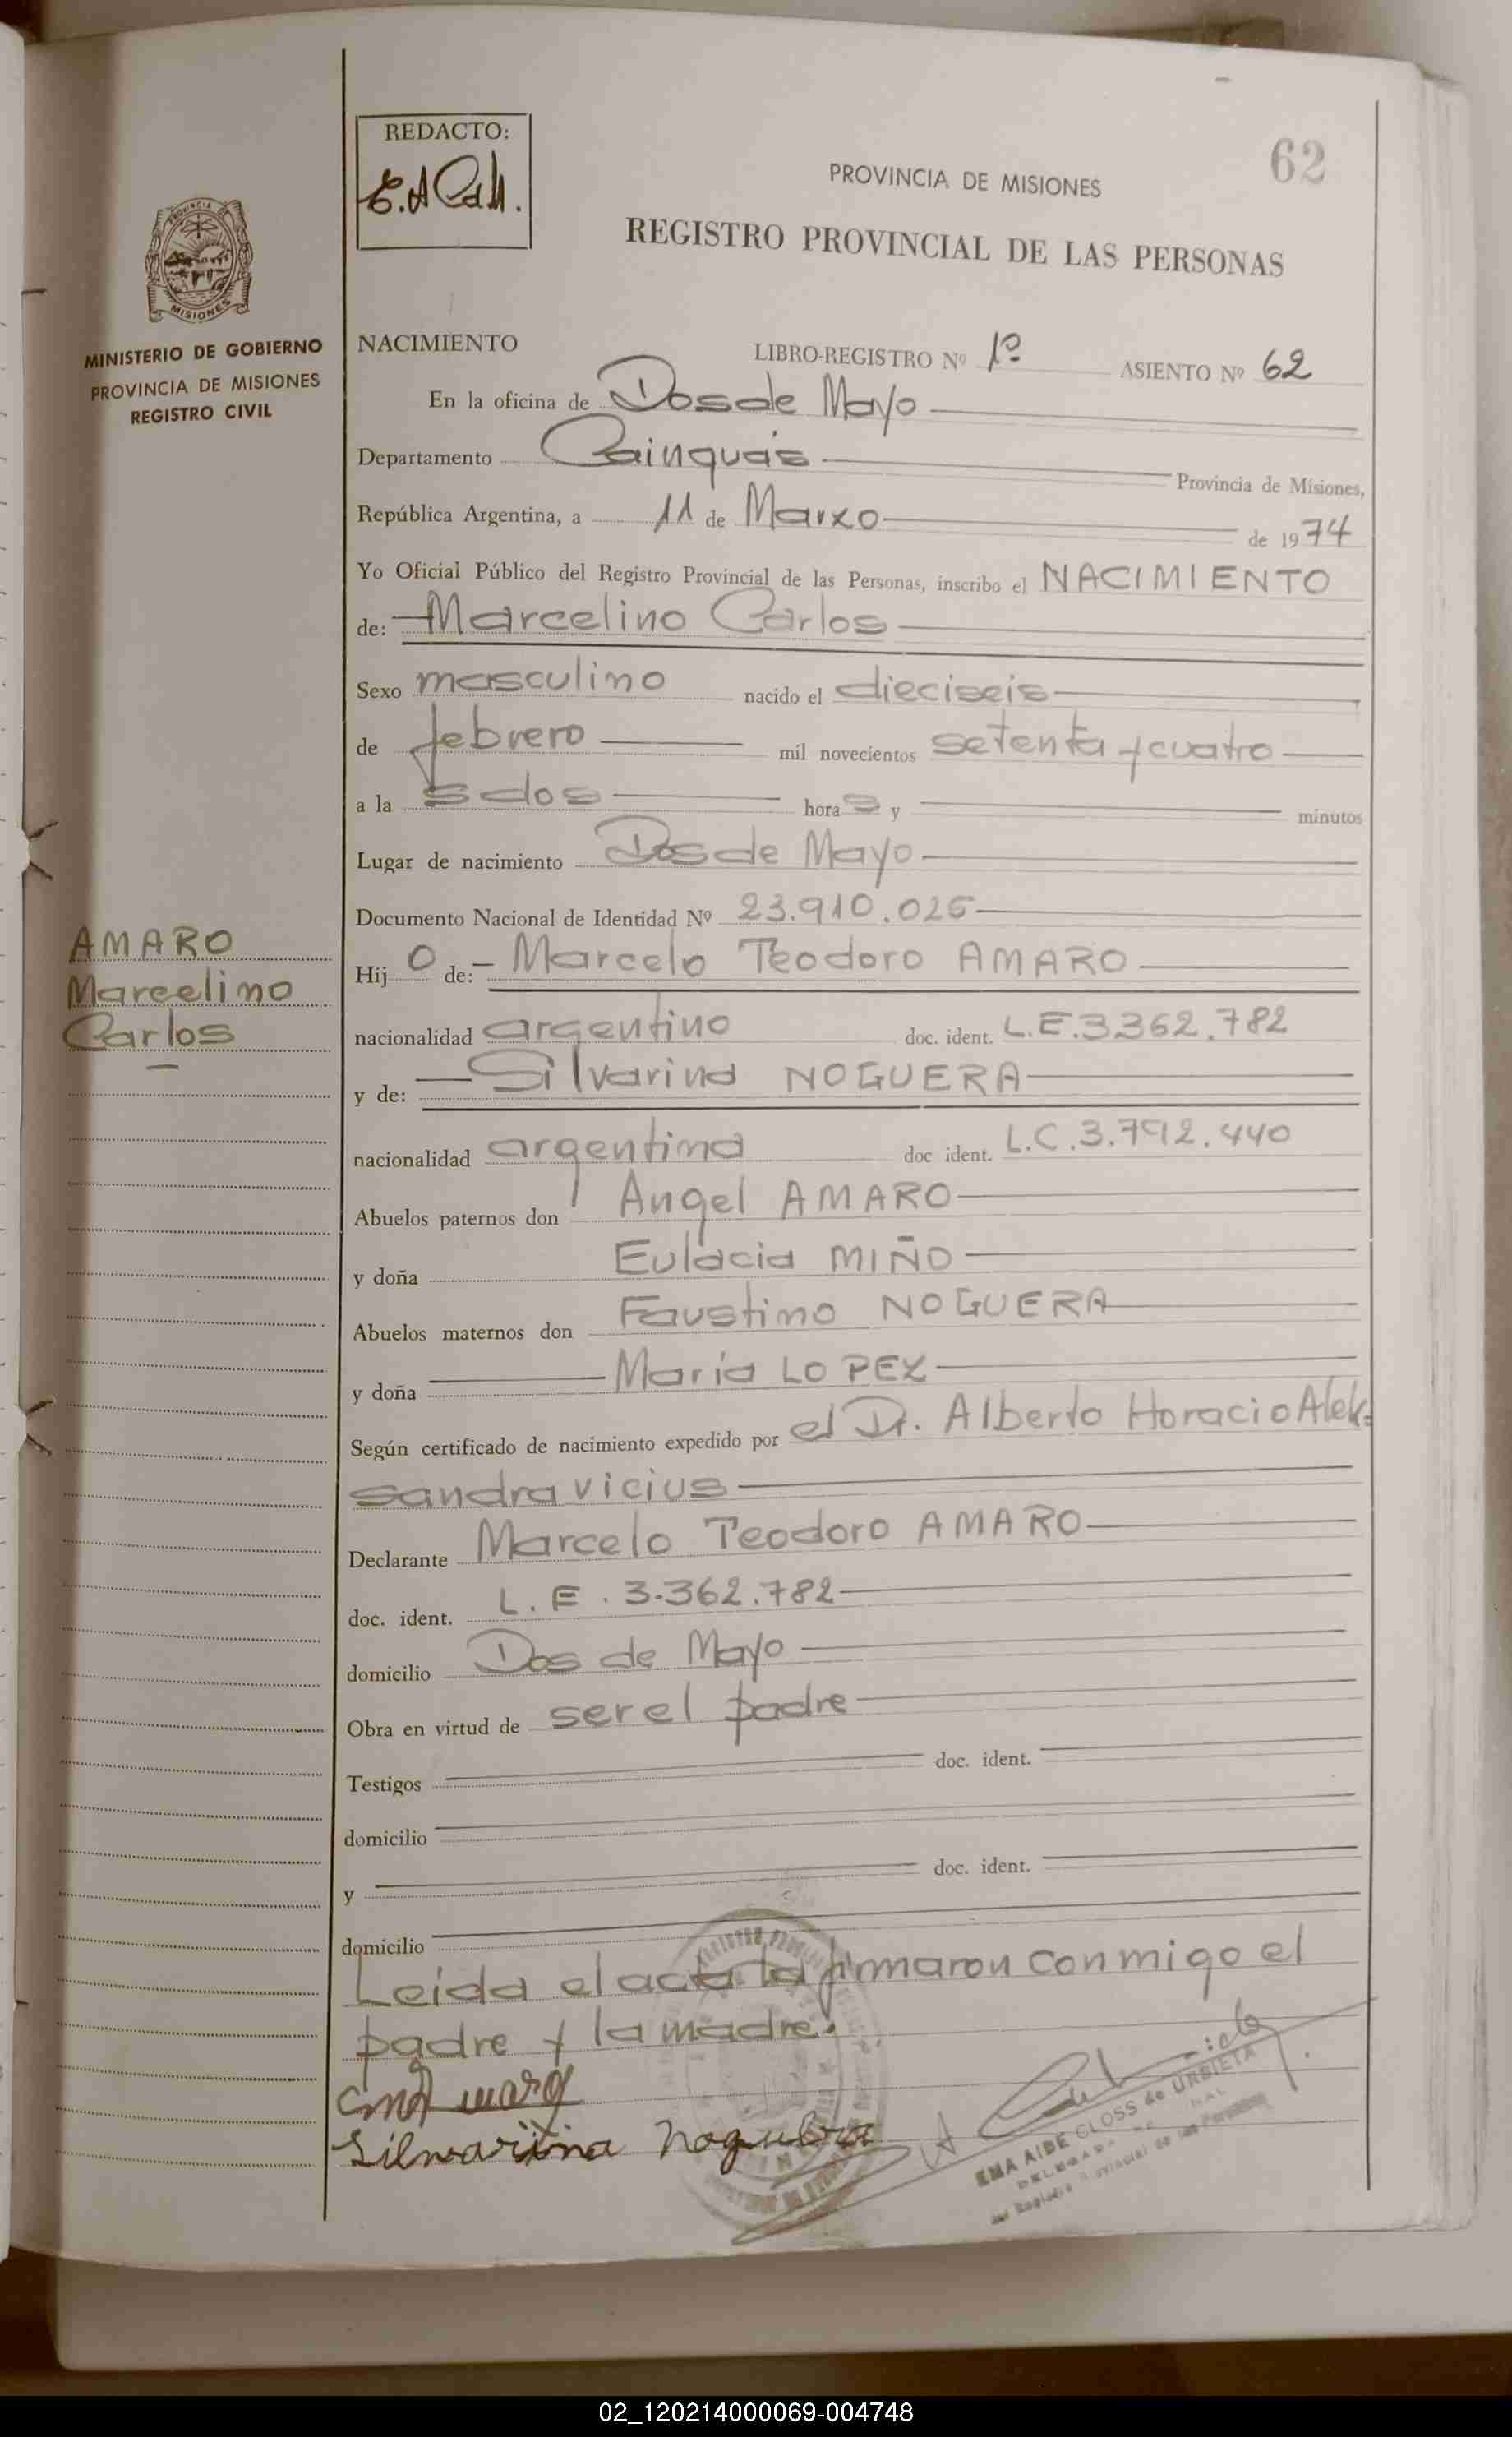 REDACTO:
62
PROVINCIA DE MISIONES
REGISTRO PROVINCIAL DE LAS PERSONAS
PROVINCIA
MISIONES
MINISTERIO DE GOBIERNO
PROVINCIA DE MISIONES
REGISTRO CIVIL
NACIMIENTO LIBRO-REGISTRO Nº 1º ASIENTO Nº 62
En la oficina de Dos de Mayo
Departamento Cainguás Provincia de Misiones,
República Argentina, a 11 de Marzo de 1974
Yo Oficial Público del Registro Provincial de las Personas, inscribo el NACIMIENTO
de: Marcelino Carlos
Sexo masculino nacido el dieciseis
de febrero mil novecientos setenta y cuatro
a la s dos hora s y minutos
Lugar de nacimiento Dos de Mayo
Documento Nacional de Identidad Nº 23.910.025
AMARO
Marcelino
Carlos
Hij o de: Marcelo Teodoro AMARO
nacionalidad argentino doc. ident. L.E.3362.782
y de: Silvarina NOGUERA
nacionalidad argentina doc ident. L.C.3.792.440
Abuelos paternos don Angel AMARO
y doña Eulacia MIÑO
Abuelos maternos don Faustino NOGUERA
y doña María LOPEZ
Según certificado de nacimiento expedido por el Dr. Alberto Horacio Alek-
sandravicius
Declarante Marcelo Teodoro AMARO
doc. ident. L.E. 3.362.782
domicilio Dos de Mayo
Obra en virtud de ser el padre
Testigos doc. ident.
domicilio
y doc. ident.
domicilio
Leida el acta la firmaron conmigo el
padre y la madre.
Silvarina Noguera
EMA AIDE CLOSS de URBIETA
02_120214000069-004748